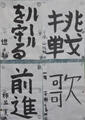 挑戦
ルールを守る
歌
前進